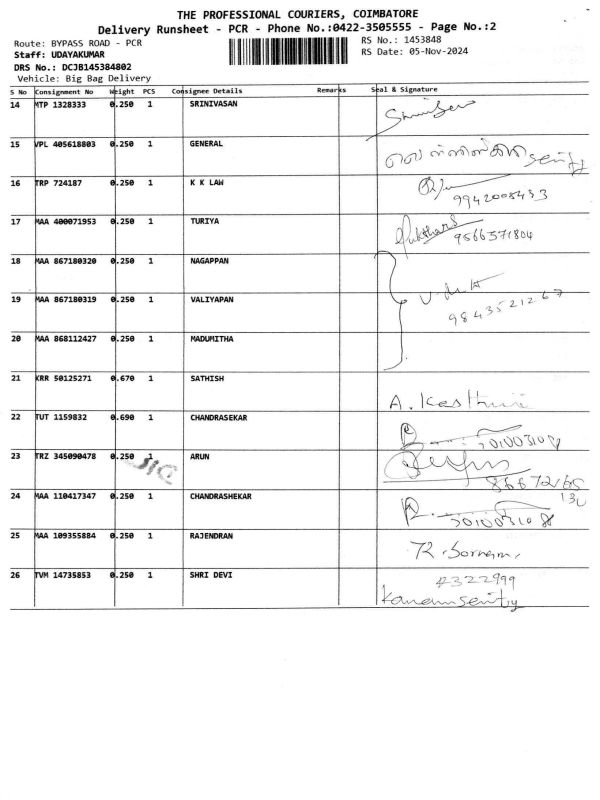 THE PROFESSIONAL COURIERS, COIMBATORE
Delivery Runsheet - PCR - Phone No.:0422-3505555 - Page No.:2
Route: BYPASS ROAD - PCR RS No.: 1453848
Staff: UDAYAKUMAR RS Date: 05-Nov-2024
DRS No.: DCJB145384802
Vehicle: Big Bag Delivery
S No Consignment No Weight PCS Consignee Details Remarks Seal & Signature
14 MTP 1328333 0.250 1 SRINIVASAN
15 VPL 405618803 0.250 1 GENERAL
16 TRP 724187 0.250 1 K K LAW
9942008433
17 MAA 400071953 0.250 1 TURIYA
9566371804
18 MAA 867180320 0.250 1 NAGAPPAN
19 MAA 867180319 0.250 1 VALIYAPAN
9843521267
20 MAA 868112427 0.250 1 MADUMITHA
21 KRR 50125271 0.670 1 SATHISH
A. Kasthuri
22 TUT 1159832 0.690 1 CHANDRASEKAR
23 TRZ 345090478 0.250 1 ARUN
24 MAA 110417347 0.250 1 CHANDRASHEKAR
25 MAA 109355884 0.250 1 RAJENDRAN
26 TVM 14735853 0.250 1 SHRI DEVI